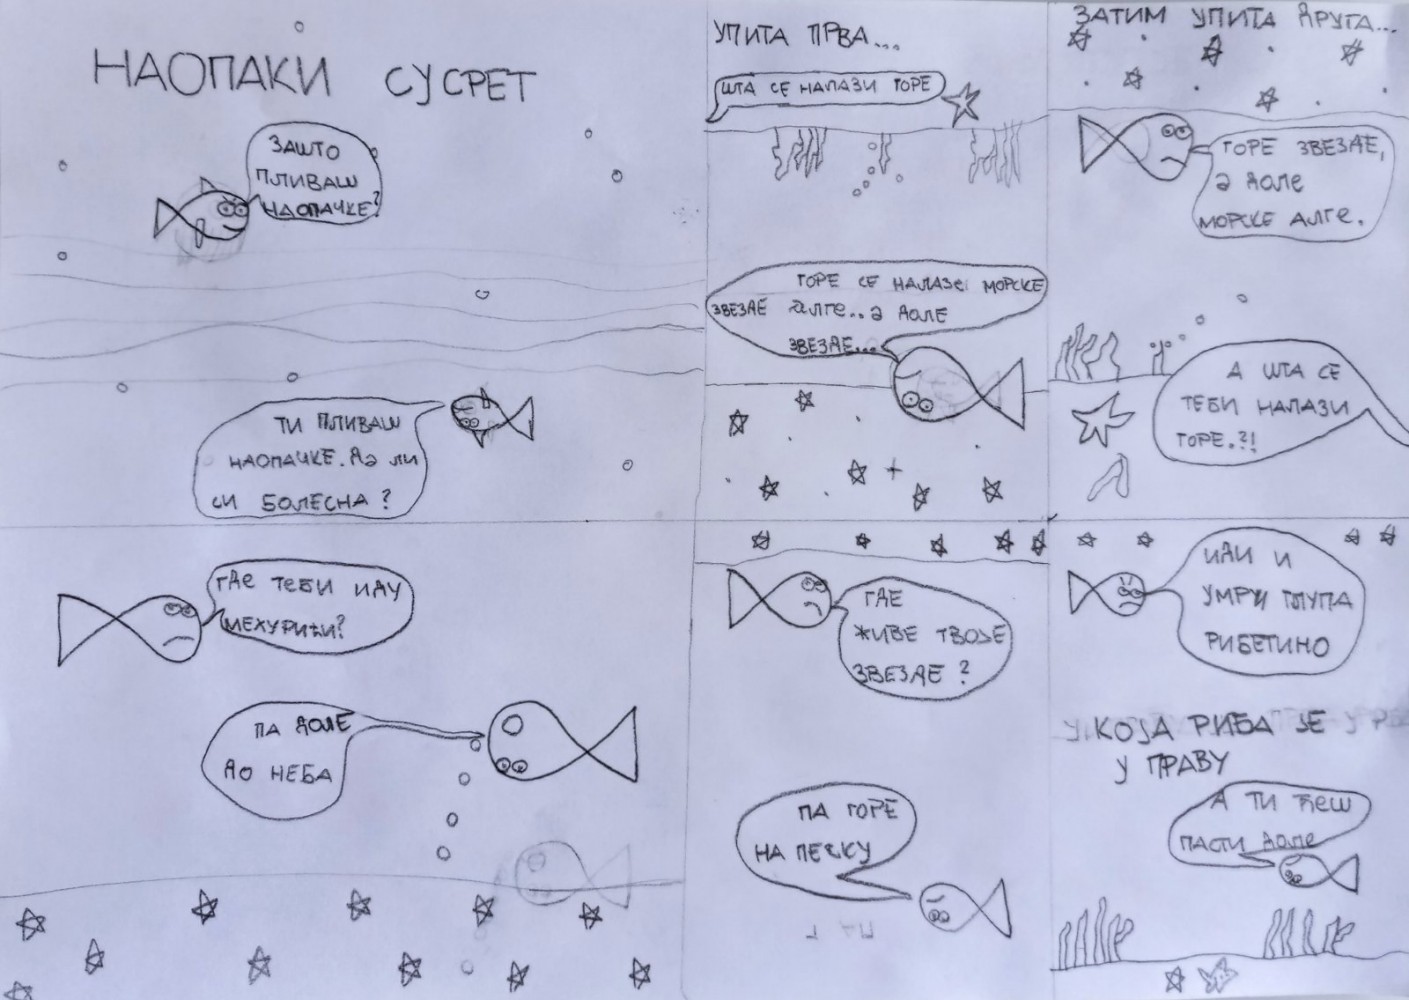 НАОПАКИ СУСРЕТ
ЗАШТО
ПЛИВАШ
НАОПАЧКЕ?
ТИ ПЛИВАШ
НАОПАЧКЕ. ДА ЛИ
СИ БОЛЕСНА?
УПИТА ПРВА...
ШТА СЕ НАЛАЗИ ГОРЕ
ГОРЕ СЕ НАЛАЗЕ МОРСКЕ
ЗВЕЗДЕ АЛГЕ.. А ДОЛЕ
ЗВЕЗДЕ...
ЗАТИМ УПИТА ДРУГА...
ГОРЕ ЗВЕЗДЕ,
А ДОЛЕ
МОРСКЕ АЛГЕ.
А ШТА СЕ
ТЕБИ НАЛАЗИ
ГОРЕ.?!
ГДЕ ТЕБИ ИДУ
МЕХУРИЋИ?
ПА ДОЛЕ
ДО НЕБА
ГДЕ
ЖИВЕ ТВОЈЕ
ЗВЕЗДЕ?
ПА ГОРЕ
НА ПЕСКУ
ИДИ И
УМРИ ГЛУПА
РИБЕТИНО
КОЈА РИБА ЈЕ
У ПРАВУ
А ТИ ЋЕШ
ПАСТИ ДОЛЕ